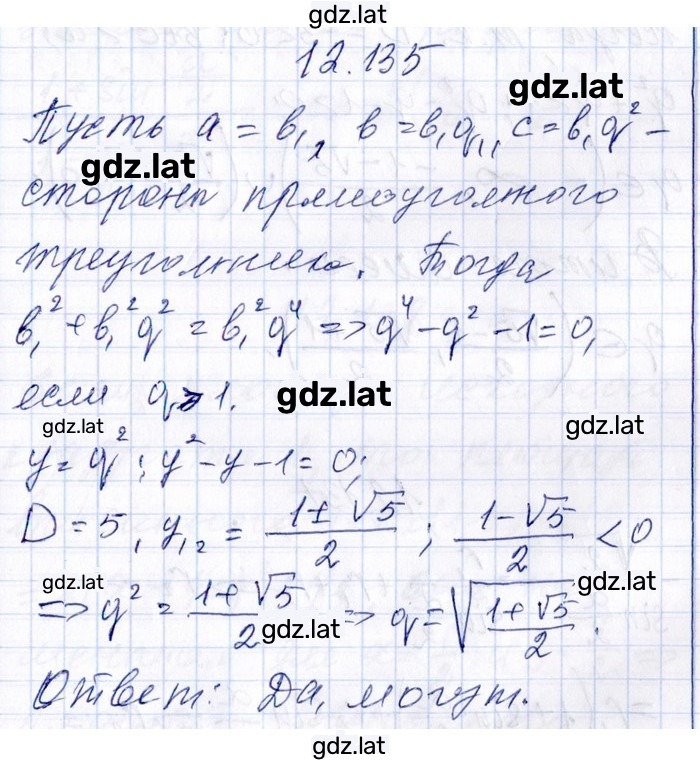 gdz.lat
12.135
gdz.lat
Пусть a = b₁, b = b₁q, c = b₁q² –
gdz.lat
стороны прямоугольного
треугольника. Тогда
b₁² + b₁²q² = b₁²q⁴ => q⁴ – q² – 1 = 0,
если q > 1.
gdz.lat
gdz.lat
gdz.lat
y = q²; y² – y – 1 = 0;
D = 5, y₁,₂ = (1 ± √5)/2 ; (1 – √5)/2 < 0
gdz.lat
gdz.lat
=> q² = (1 + √5)/2 => q = √((1 + √5)/2).
gdz.lat
Ответ: Да, могут.
gdz.lat